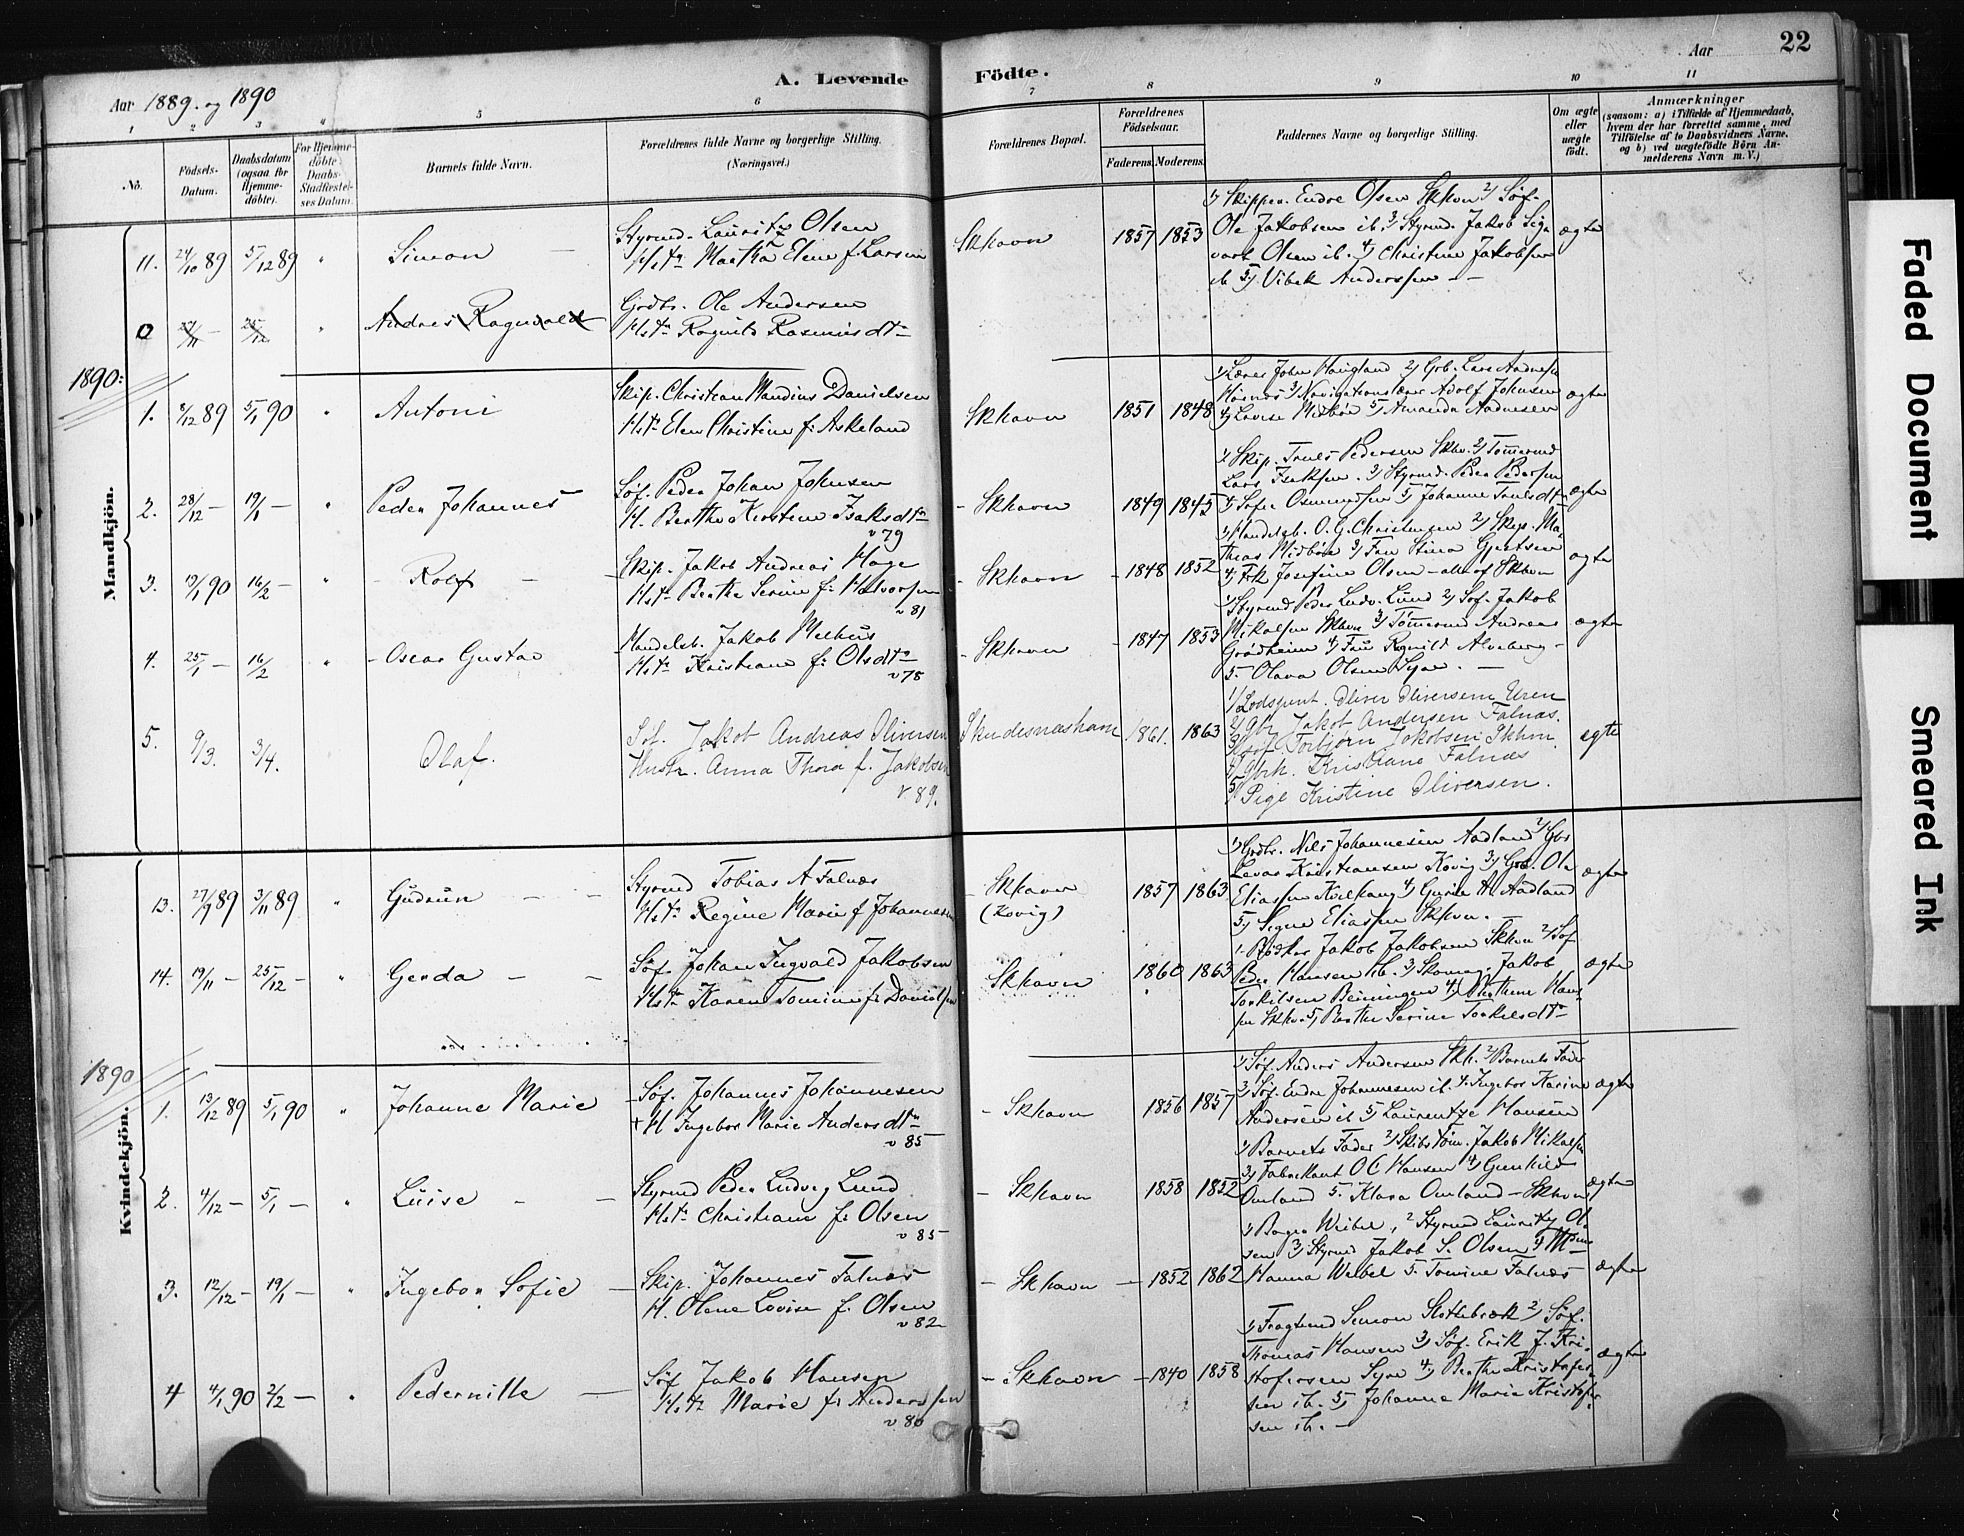 Aar 1889. og 1890
A. Levende Födte.
Aar
22
1 2 3 4 5 6 7 8 9 10 11
No.
Födsels-Datum.
Daabsdatum (ogsaa for Hjemme-döbte).
For Hjemme-döbte: Daabs-Stadfæstelses Datum.
Barnets fulde Navn.
Forældrenes fulde Navne og borgerlige Stilling. (Næringsvei.)
Forældrenes Bopæl.
Forældrenes Födselsaar.
Faderens. Moderens.
Faddernes Navne og borgerlige Stilling.
Om ægte eller uægte födt.
Anmærkninger
(saasom: a) i Tilfælde af Hjemmedaab, hvem der har forrettet samme, med Tilföielse af to Daabsvidners Navne. og b) ved uægtefödte Börn Anmelderens Navn m. V.)
Mandkjön.
11. 24/10 89 5/12 89 " Simon —
Styrmd. Lauritz Olsen
Hst. Martha Elene f. Larsen
Skhavn 1857 1853
1) Skipper Endre Olsen Skhvn 2) Søf.
Ole Jakobsen ib. 3) Styrmd. Jakob Sig-
vart Olsen ib. 4) Christine Jakobsen
ib 5) Vibek Anderssen — —
ægte
0 " Andreas Ragnvald
Grdbr. Ole Andersen
Hst. Ragnild Rasmusdt
1890:
1. 8/12 89 5/1 90 " Antoni
Skip. Christian Mandius Danielsen
Hst. Elen Christine f. Askeland
Skhavn 1851 1848
1) Lærer John Haugland 2) Grb. Lars Aadnesen
3) Navigationslærer Adolf Johnsen
4) Lovise Midbøe 5) Amanda Aadnesen
ægte
2. 28/12 — 19/1 — " Peder Johannes
Søf. Peder Johan Johnsen
H. Berthe Kirstine Isaksdt
v 79
— Skhavn 1849 1845
1) Skip. Truls Pedersen Skhv. 2) Tømrmd
Lars Isaksen. 3) Styrmd. Peder Pedersen
4) Sofie Osmundsen 5) Johanne Trulsdt
ægte
3. 19/1 90 16/2 — " Rolf —
Skip. Jakob Andreas Hage
Hst. Berthe Serine f. Halvorsen
v 81
— Skhavn — 1848 1852
1) Handelsb. O. G. Christensen 2) Skip. Ma-
thias Midbøe 3) Fru Stina Gjertsen
4) Frk Josefine Olsen — alle af Skhvn
ægte
4. 25/1 — 16/2 " — Oscar Gustav
Handelsb. Jakob Melhus
Hst. Kristiane f. Olsdt
v 78
— Skhavn — 1847 1853
1) Styrmd Peder Ludv. Lund 2) Søf. Jakob
Mikalsen Skhvn 3) Tømrmd Andreas
Grødheim 4) Fru Ragnild Alveberg —
5. Olava Olsen Syre. —
ægte
5. 9/3. 3/4. Olaf.
Søf. Jakob Andreas Oliversen
Hustr. Anna Thora f. Jakobsen
v 89.
Skudesnæshavn 1861. 1863
1/ Lods Oliver Oliversen Uren
2/ Gbr. Jakob Andersen Falnæs.
3/ Søf. Torbjørn Jakobsen Skhvn.
4/ Gbrk. Kristiane Falnæs
5/ Pige Kristine Oliversen.
egte
Kvindekjön.
13. 27/9 89 3/11 89 " Gudrun — —
Styrmd Tobias A Falnæs
Hst. Regine Marie f Johannesen
— Skhavn (Kovig) 1857 1863
1) Grdbr. Nils Johannesen Aadland 2) Gbr
Kristiansen Kovig 3) Grdb. Ole
Eliasen 4) Gurine M. Aadland
5) Signe Eliasen Skhvn.
ægte
14. 19/11 — 25/12 — " Gerda — —
Søf. Johan Ingvald Jakobsen
Hst. Karen Tomine f. Danielsen
Skhavn 1860 1863
1. Bødker Jakob Jakobsen Skhvn 2) Søf
Peder Hansen ib. 3) Skomag. Jakob
Torkilsen Beiningen 4) Berthine Han-
sen Skhv. 5) Berthe Serine Torkelsdt
ægte
1890
1. 13/12 89 5/1 90 " Johanne Marie
— Søf. Johannes Johannesen
+ H Ingebor Marie Andersdt
v 85
— Skhavn 1856 1857
1) Søf. Anders Andersen Skh. 2) Barnets Fader
3) Søf. Endre Johannesen ib. 4. Ingebor Karine
Andersen ib 5) Laurentze Hansen
ægte
2. 4/12 — 5/1 — " Luise — —
Styrmd Peder Ludvig Lund
Hst. Christiane f. Olsen
v 85
— Skhavn 1858 1852
1) Barnets Fader 2) Skibstøm. Jakob Mikalsen
3) Fabrikant O C Hansen 4) Gunhild
Omland 5. Klara Omland — Skhvn
ægte
3. 12/12 — 19/1 — " Ingebor Sofie —
Skip. Johannes Falnæs
H. Olene Lovise f. Olsen
v 82
— Skhavn — 1852 1862
1) Bager Weibel, 2 Styrmd Lauritz Ol-
sen 3) Styrmd Jakob S. Olsen 4)
Hanna Weibel 5. Tomine Falnæs
ægte
4 4/1 90 2/2 — " Pedernille —
Søf Jakob Hansen
Hst. Marie f. Anderssen
v 80
— Skhavn — 1840 1858
1) Simon Slottebræk 2) Søf.
Thomas Hansen 3) Søf. Erik J. Kri-
stofersen Syre 4) Berthe Kristofer-
sen ib. 5) Johanne Marie Kristofer-
sen ib. —
ægte
Faded Document
Smeared Ink